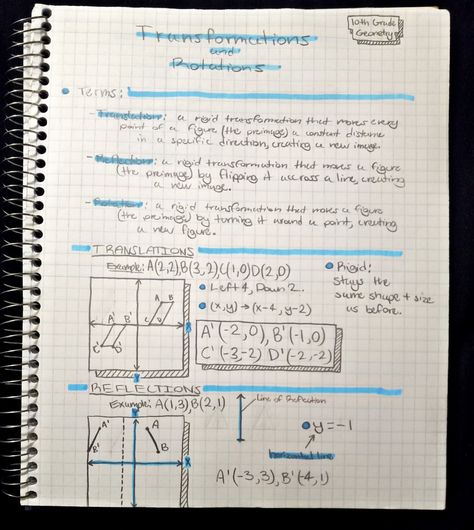 Transformations
and
Rotations
10th Grade
Geometry
Terms:
- Translation: a rigid transformation that moves every
point of a figure (the preimage) a constant distance
in a specific direction, creating a new image.
- Reflection: a rigid transformation that moves a figure
(the preimage) by flipping it accross a line, creating
a new image.
- Rotation: a rigid transformation that moves a figure
(the preimage) by turning it around a point, creating
a new figure.
TRANSLATIONS
Example: A(2,2), B(3,2) C(1,0) D(2,0)
• Left 4, Down 2.
• (x,y) → (x-4, y-2)
• Rigid:
stays the
same shape + size
as before.
A'(-2,0), B'(-1,0)
C'(-3,-2) D'(-2,-2)
A B
A' B'
C' D'
X
Y
REFLECTIONS
Example: A(1,3), B(2,1)
Line of Reflection
• y = -1
horizontal line
A'(-3,3), B'(-4,1)
A' A
B' B
X